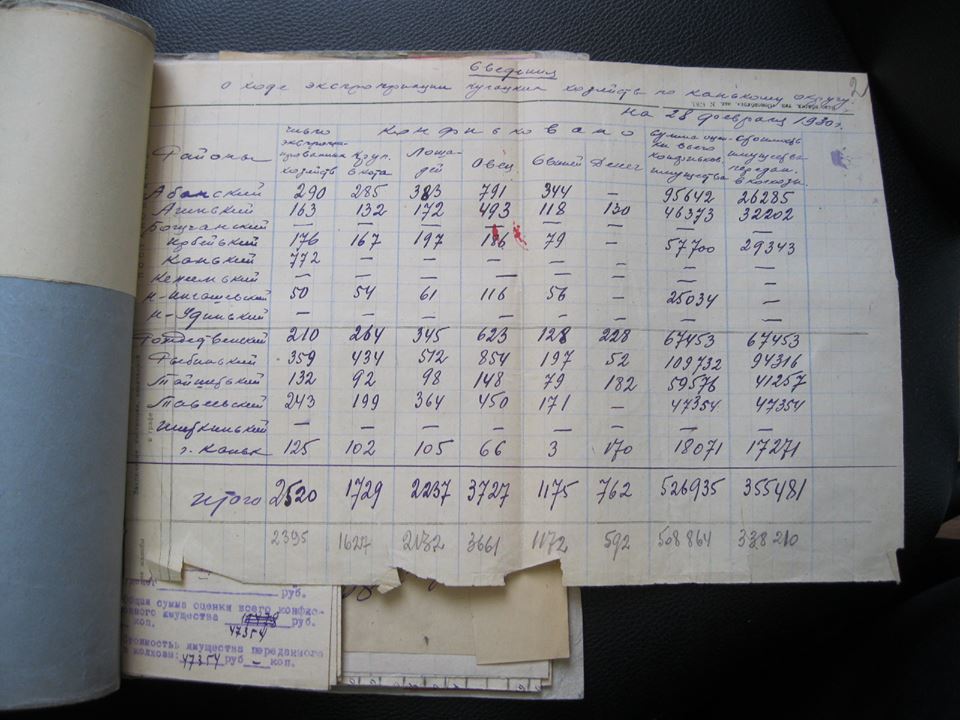 Сведения
о ходе экспроприации кулацких хозяйств по Канскому округу.
на 28 февраля 1930 г.
2
Районы | число экспроприированных хозяйств | Конфисковано | Круп. скота | Лошадей | Овец | Свиней | Денег | Сумма оценки всего конфисков. имущества | Стоимость имущества передан. в колхозы.
Абанский 290 285 383 791 344 — 95642 26285
Агинский 163 132 172 493 118 130 46373 32202
Богучанский — — — — — — — —
Ирбейский 176 167 197 186 79 — 57700 29343
Канский 772 — — — — — — —
Кежемский — — — — — — — —
Н-Ингашский 50 54 61 116 56 — 25034 —
Н-Удинский — — — — — — — —
Рождественский 210 264 345 623 128 228 67453 67453
Рыбинский 359 434 512 854 197 52 109732 94316
Тайшетский 132 92 98 148 79 182 59576 41257
Тасеевский 243 199 364 450 171 — 47354 47354
Шиткинский — — — — — — — —
г. Канск 125 102 105 66 3 170 18071 17271
Итого 2520 1729 2237 3727 1175 762 526935 355481
2395 1627 2132 3661 1172 592 508864 338210
руб.
Общая сумма оценки всего конфис-
кованного имущества руб.
47354
коп.
Стоимость имущества переданного
колхозам: 47354 руб — коп.